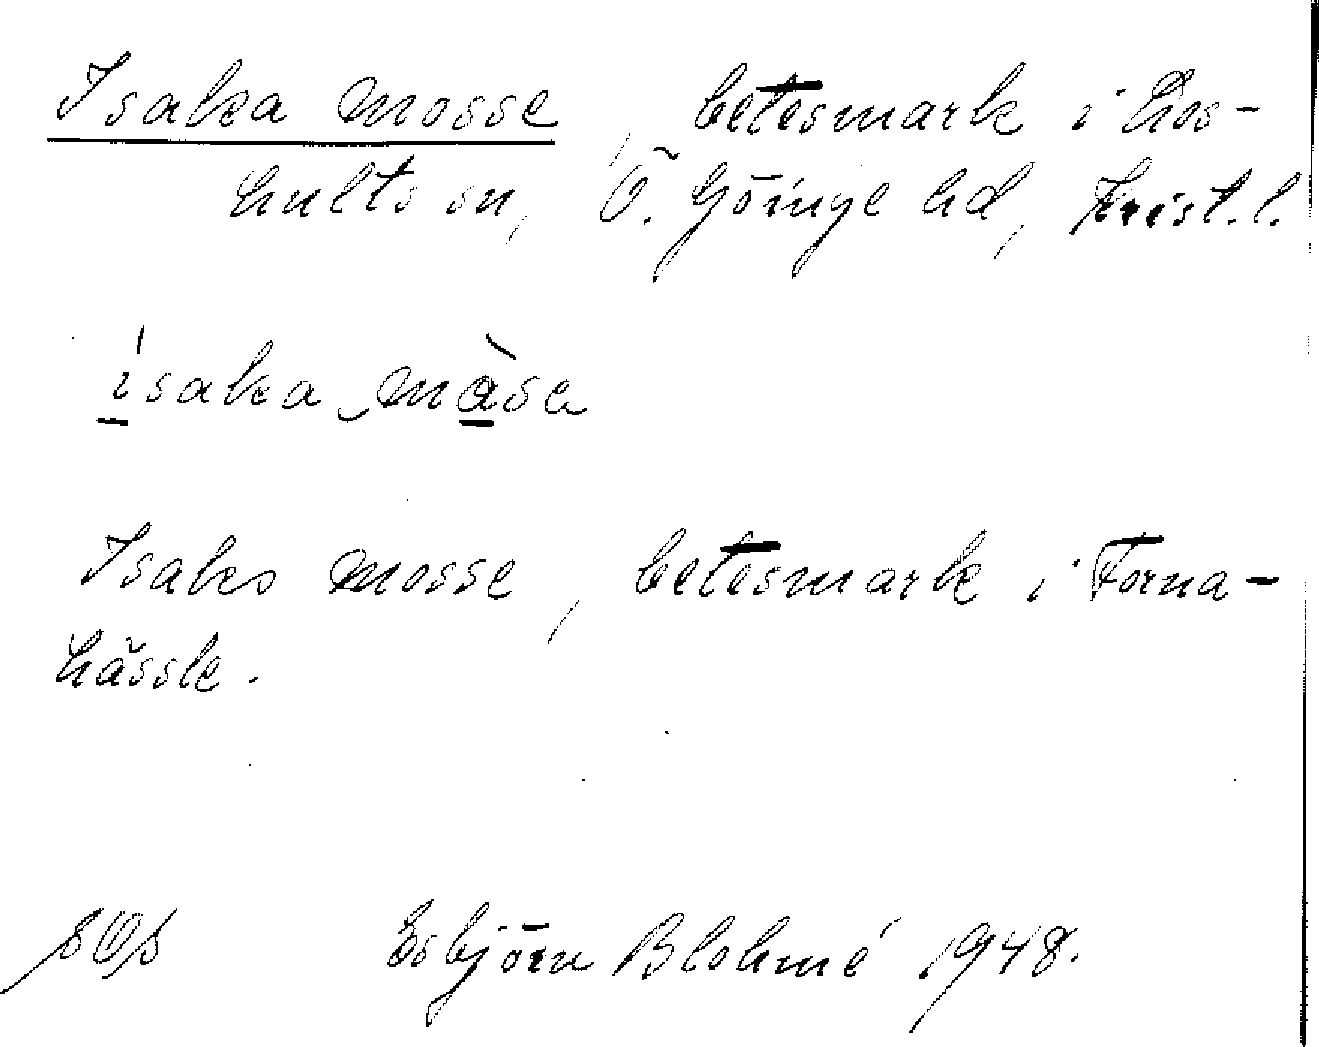 Isaka mosse, betesmark i Los-
hults sn, Ö. Göinge hd, Krist. l.
ísaka màsa
Isaks mosse, betesmark i Forna-
hässle.
Esbjörn Blohmé 1948.